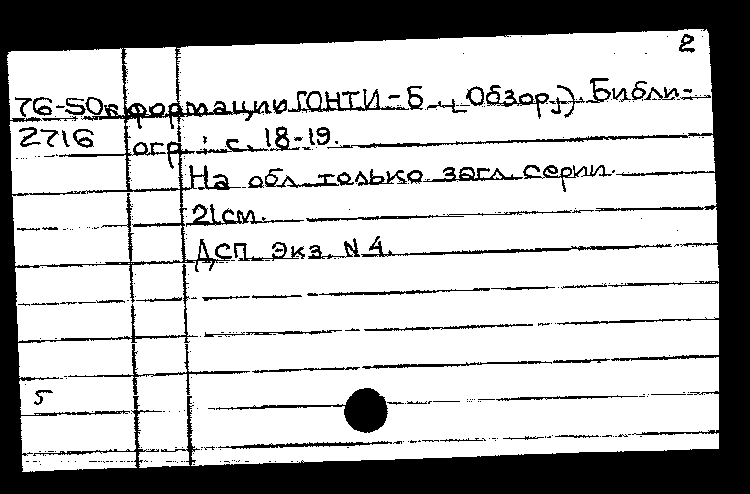 2
76-50к формации ГОНТИ-Б. [Обзор]). Библи-
2716 огр.: с. 18-19.
На обл. только загл. серии.
21см.
ДСП. Экз. N 4.
5